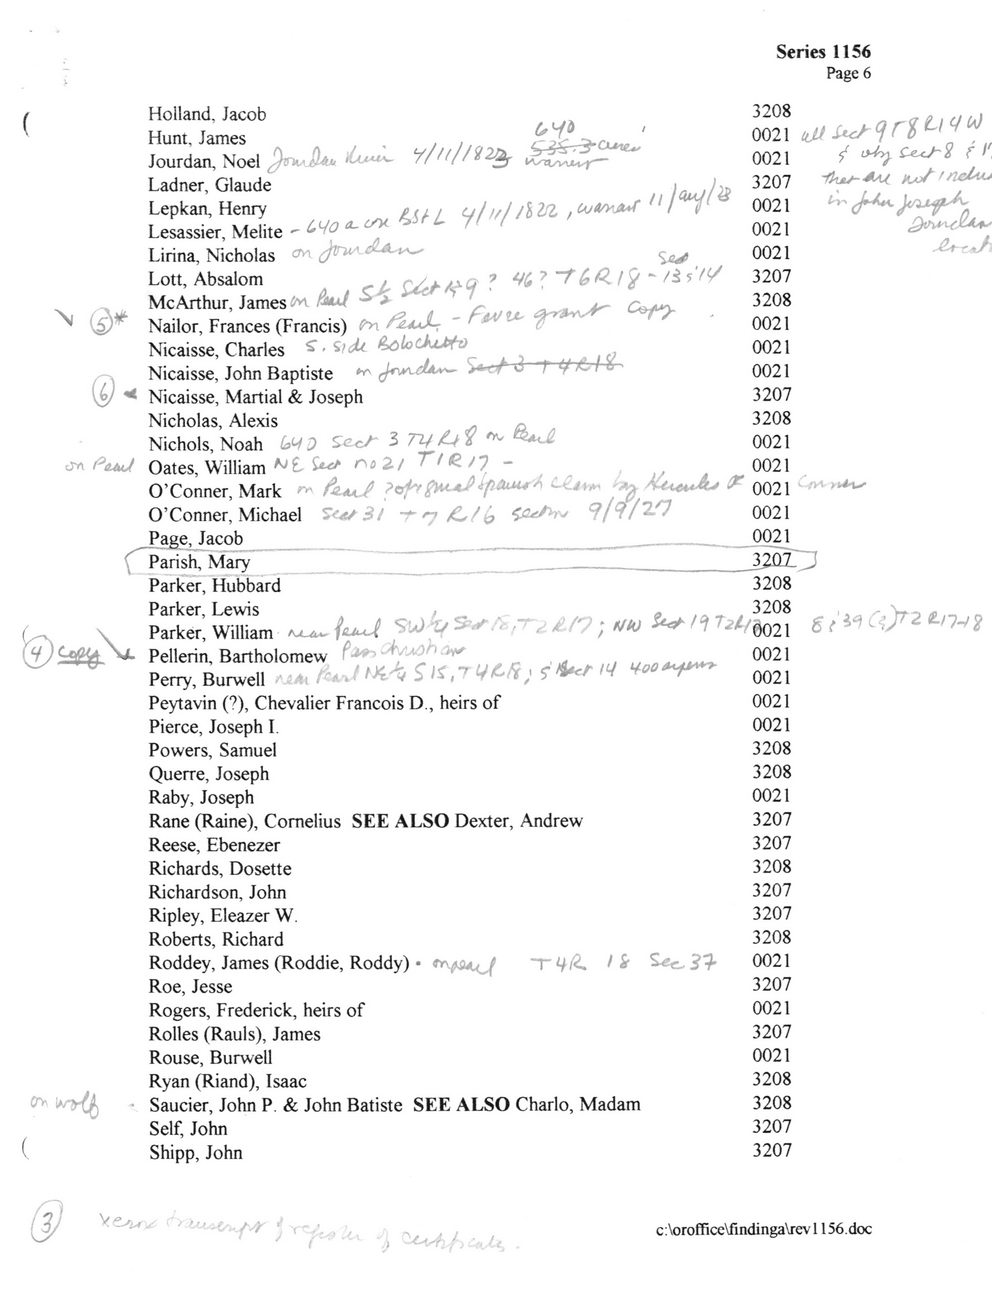 Series 1156
Page 6
Holland, Jacob 3208
640
Hunt, James 0021 all Sect 9 T8 R14W
535.3 acres
Jourdan, Noel Jourdan River 4/11/1823 warrant 0021 & sect 8 &
Ladner, Glaude 3207 that are not inclu
Lepkan, Henry 0021 in John Joseph
Lesassier, Melite - 640 a 4/11/1822, warrant 11/aug/23 0021 Jourdan
Lirina, Nicholas on Jourdan 0021 locat
Lott, Absalom 3207
McArthur, James on Pearl S½ Sect 9? 46? T6R18 - Sec 13 & 14 3208
5 * Nailor, Frances (Francis) on Pearl - Favre grant copy 0021
Nicaisse, Charles S. side Bolochetto 0021
Nicaisse, John Baptiste on Jourdan Sect 3 T4R18 0021
6 Nicaisse, Martial & Joseph 3207
Nicholas, Alexis 3208
Nichols, Noah 640 Sect 3 T4 R18 on Pearl 0021
on Pearl Oates, William NE Sec no 21 T1R17 - 0021
O'Conner, Mark on Pearl ? original spanish claim by Hercules O 0021 Conner
O'Conner, Michael Sect 31 T7 R16 section 9/9/27 0021
Page, Jacob 0021
Parish, Mary 3207
Parker, Hubbard 3208
Parker, Lewis 3208
Parker, William near Pearl SW¼ Sect 18, T2R17; NW Sect 19 T2R17 0021 8 & 39 (?) T2 R17-18
4 copy Pellerin, Bartholomew Pass Christian 0021
Perry, Burwell near Pearl NE¼ S15, T4R18; & Sect 14 400 arpens 0021
Peytavin (?), Chevalier Francois D., heirs of 0021
Pierce, Joseph I. 0021
Powers, Samuel 3208
Querre, Joseph 3208
Raby, Joseph 0021
Rane (Raine), Cornelius SEE ALSO Dexter, Andrew 3207
Reese, Ebenezer 3207
Richards, Dosette 3208
Richardson, John 3207
Ripley, Eleazer W. 3207
Roberts, Richard 3208
Roddey, James (Roddie, Roddy) - on pearl T4R 18 Sec 37 0021
Roe, Jesse 3207
Rogers, Frederick, heirs of 0021
Rolles (Rauls), James 3207
Rouse, Burwell 0021
Ryan (Riand), Isaac 3208
on wolf - Saucier, John P. & John Batiste SEE ALSO Charlo, Madam 3208
Self, John 3207
Shipp, John 3207
3 xerox transcript of register of certificates.
c:\oroffice\findinga\rev1156.doc